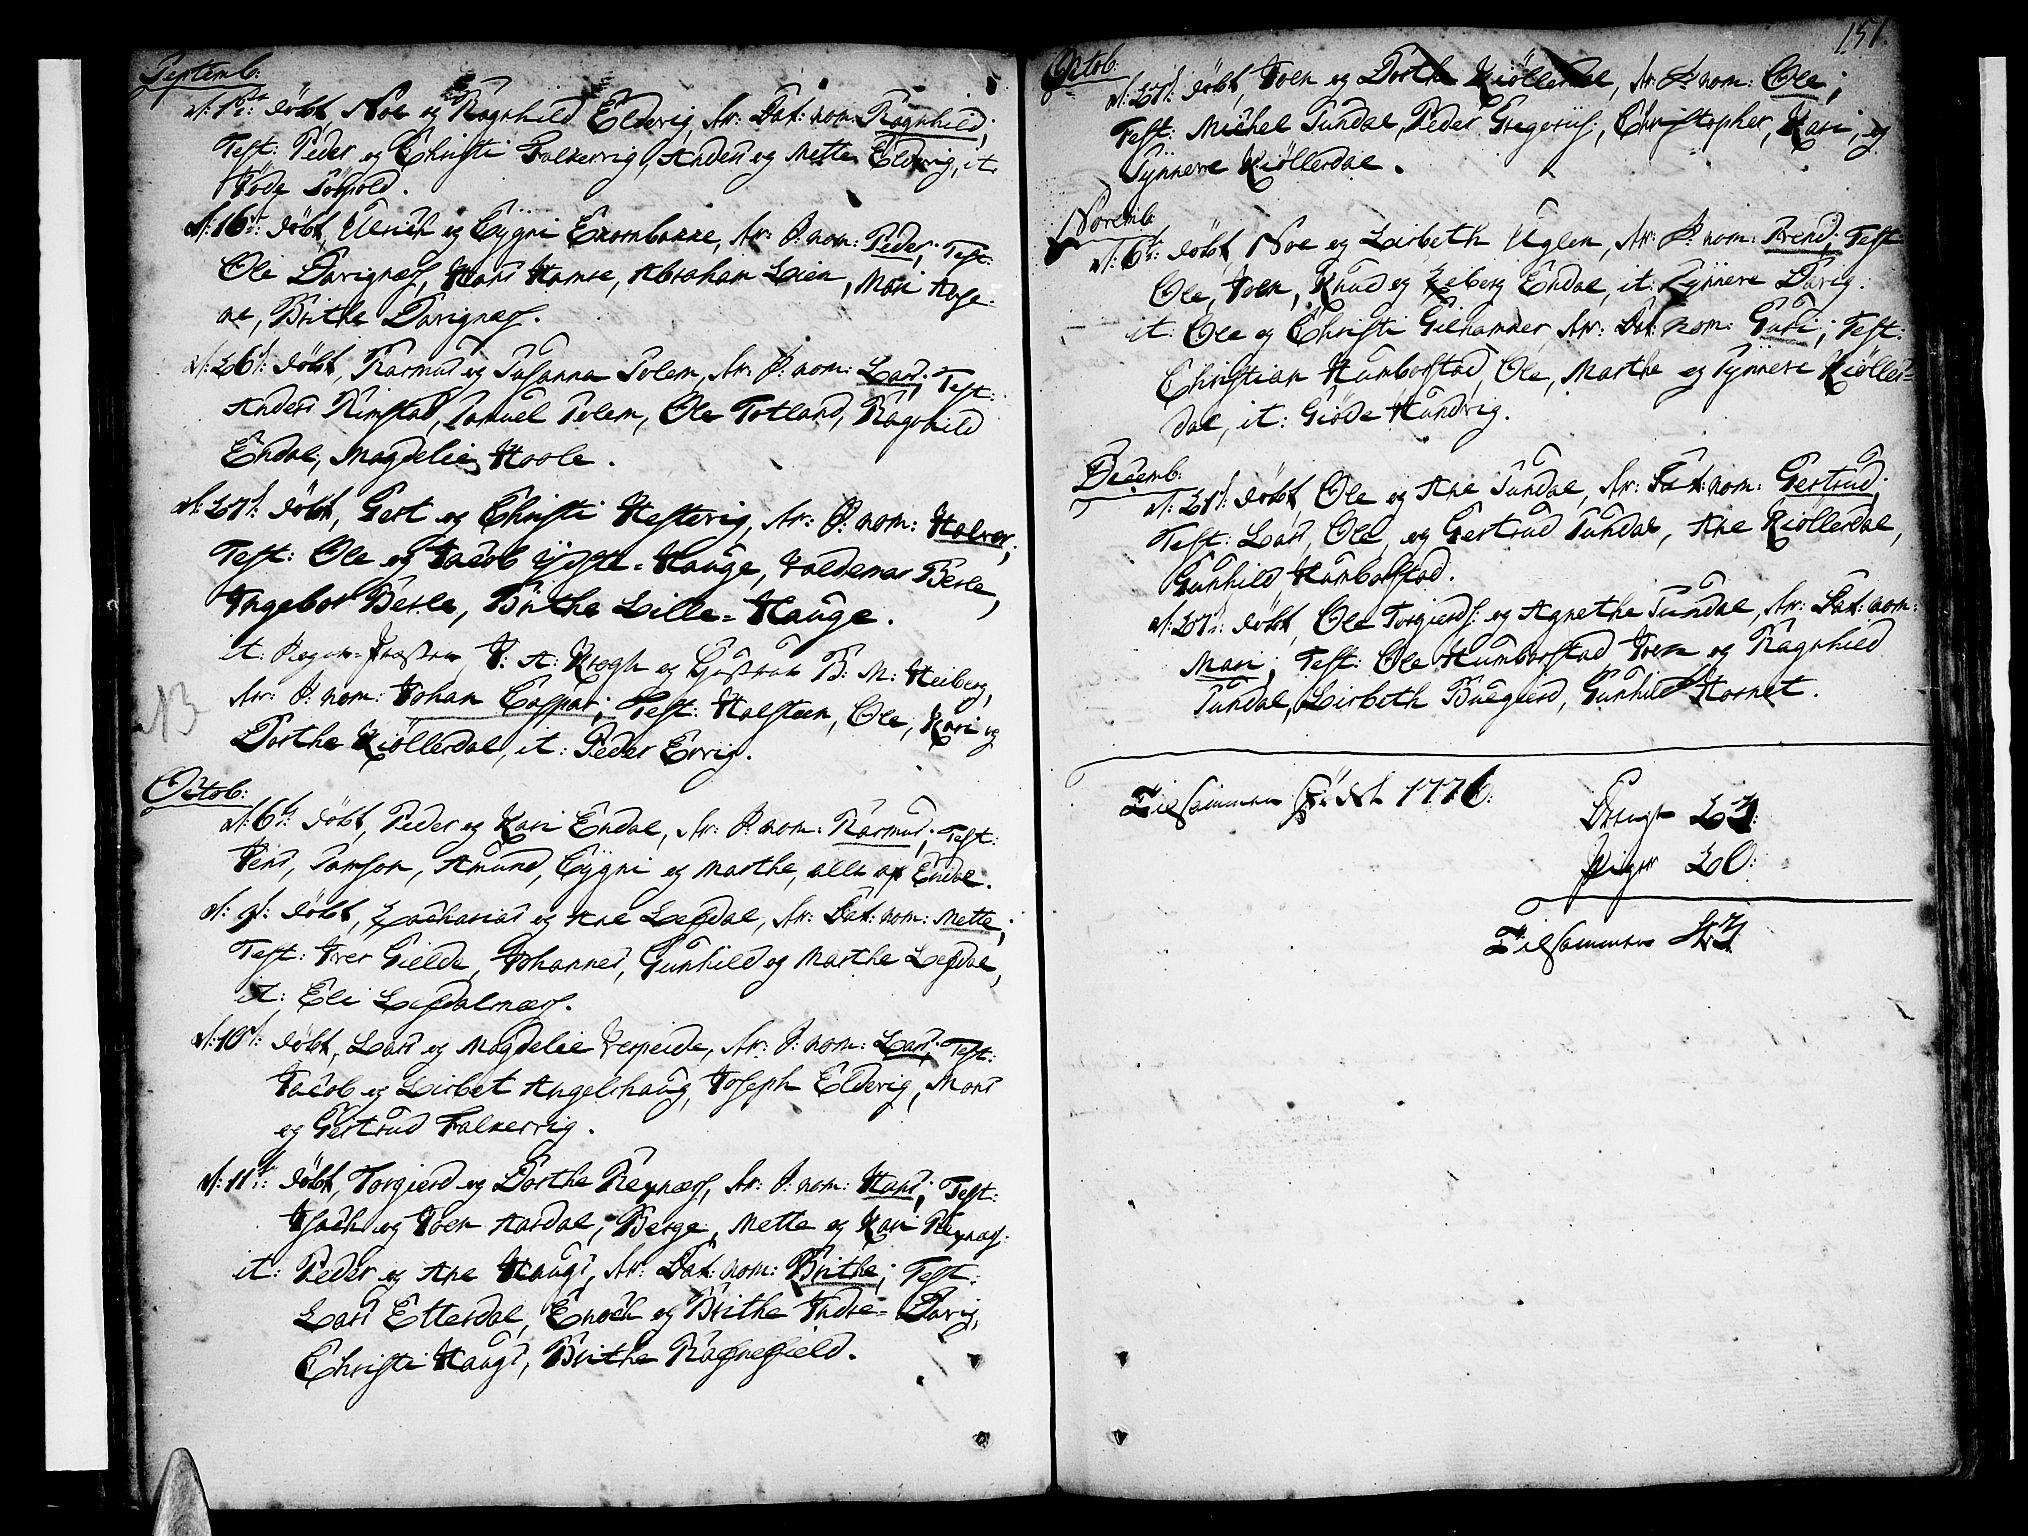 Septemb:
d: 1ste: döbt, Noe og Ragnhild Eldevig, der: Dat: nom: Ragnhild;
Test: Peder og Christi Falkevig, Anders og Mette Eldevig, it:
d: 16de: döbt, Ulrich og Sygni Exornbakke, der: F: nom: Peder; Test:
Ole Davignæss, Hans Hamre, Abraham Lien, Mari Aase-
ne, Brithe Davignæss.
d: 26d: döbt, Rasmus og Susanna Solem, der: F: nom: Lars; Test:
Anders Rimstad, Samuel Solem, Ole Totland, Ragnhild
Endal, Magdelie Hoole.
d: 27d: döbt, Gert og Christi Hestevig, der: F: nom: Halvor;
Test: Ole og Jacob Ydste-Hauge, Valdemar Berle,
Ingebor Berle, Brithe Lille-Hauge.
it: P: A: Krogh og B: M: Heiberg,
der: F: nom: Johan Caspar; Test: Halsteen, Ole, Kari og
Dorthe Kiöllerdal, it: Peder Ervig.
Octob:
d: 6te: döbt, Peder og Kari Endal, der: F: nom: Rasmus; Test:
Jens, Samson, Amund, Sygni og Marthe, alle af Endal.
d: 9d: döbt, Zacharias og Ane Lefdal, der: Dat: nom: Mette;
Test: Iver Gielde, Johannes, Gunhild og Marthe Lefdal,
it: Eli Lefdalsnæss.
d: 10d: döbt, Lars og Magdelie Verpeide, der: F: nom: Lars; Test:
Jacob og Lisbet Angelshaug, Joseph Eldevig, Mons
og Gertrud Falkevig.
d: 11te: döbt, Torgierd og Dorthe Revnæss, der: F: nom: Hans; Test:
Isach og Joen Aardal, Berge, Mette og Kari Revnæs.
it: Peder og Ane Haugs, der: Dat: nom: Brithe; Test:
Lars Etterdal, Enoch og Brithe Indre-Davig,
Christi Haugs, Brithe Ragnefield.
151.
Octob:
d: 27d: döbt, Joen og Dorthe Kiöllerdal, der: F: nom: Ole;
Test: Michel Sundal, Peder Gregerius, Christopher, Kari, og
Synneve Kiöllerdal.
Novemb:
d: 6te: döbt, Noe og Lisbeth Uglen, der: F: nom: Arend; Test:
Ole, Joen, Knud og Zeberg Endal, it: Synneve Davig.
it: Ole og Christi Gilhammer, der: Dat: nom: Guri; Test:
Christian Humborstad, Ole, Marthe og Synneve Kiöller-
dal, it: Giöde Hundvig.
Decemb:
d: 21d: döbt, Ole og Ane Sundal, der: Dat: nom: Gertrud;
Test: Lars, Ole, og Gertrud Sundal, Ane Kiöllerdal,
Gunhild Humborstad.
d: 27d: döbt, Ole Torgierds: og Agnethe Sundal, der: Dat: nom:
Mari; Test: Ole Humborstad Joen og Ragnhild
Sundal, Lisbeth Biegierd, Gunhild Hornet.
Tilsammen födt 1776:
Drenge 23:
Piger 20:
Tilsammen 43